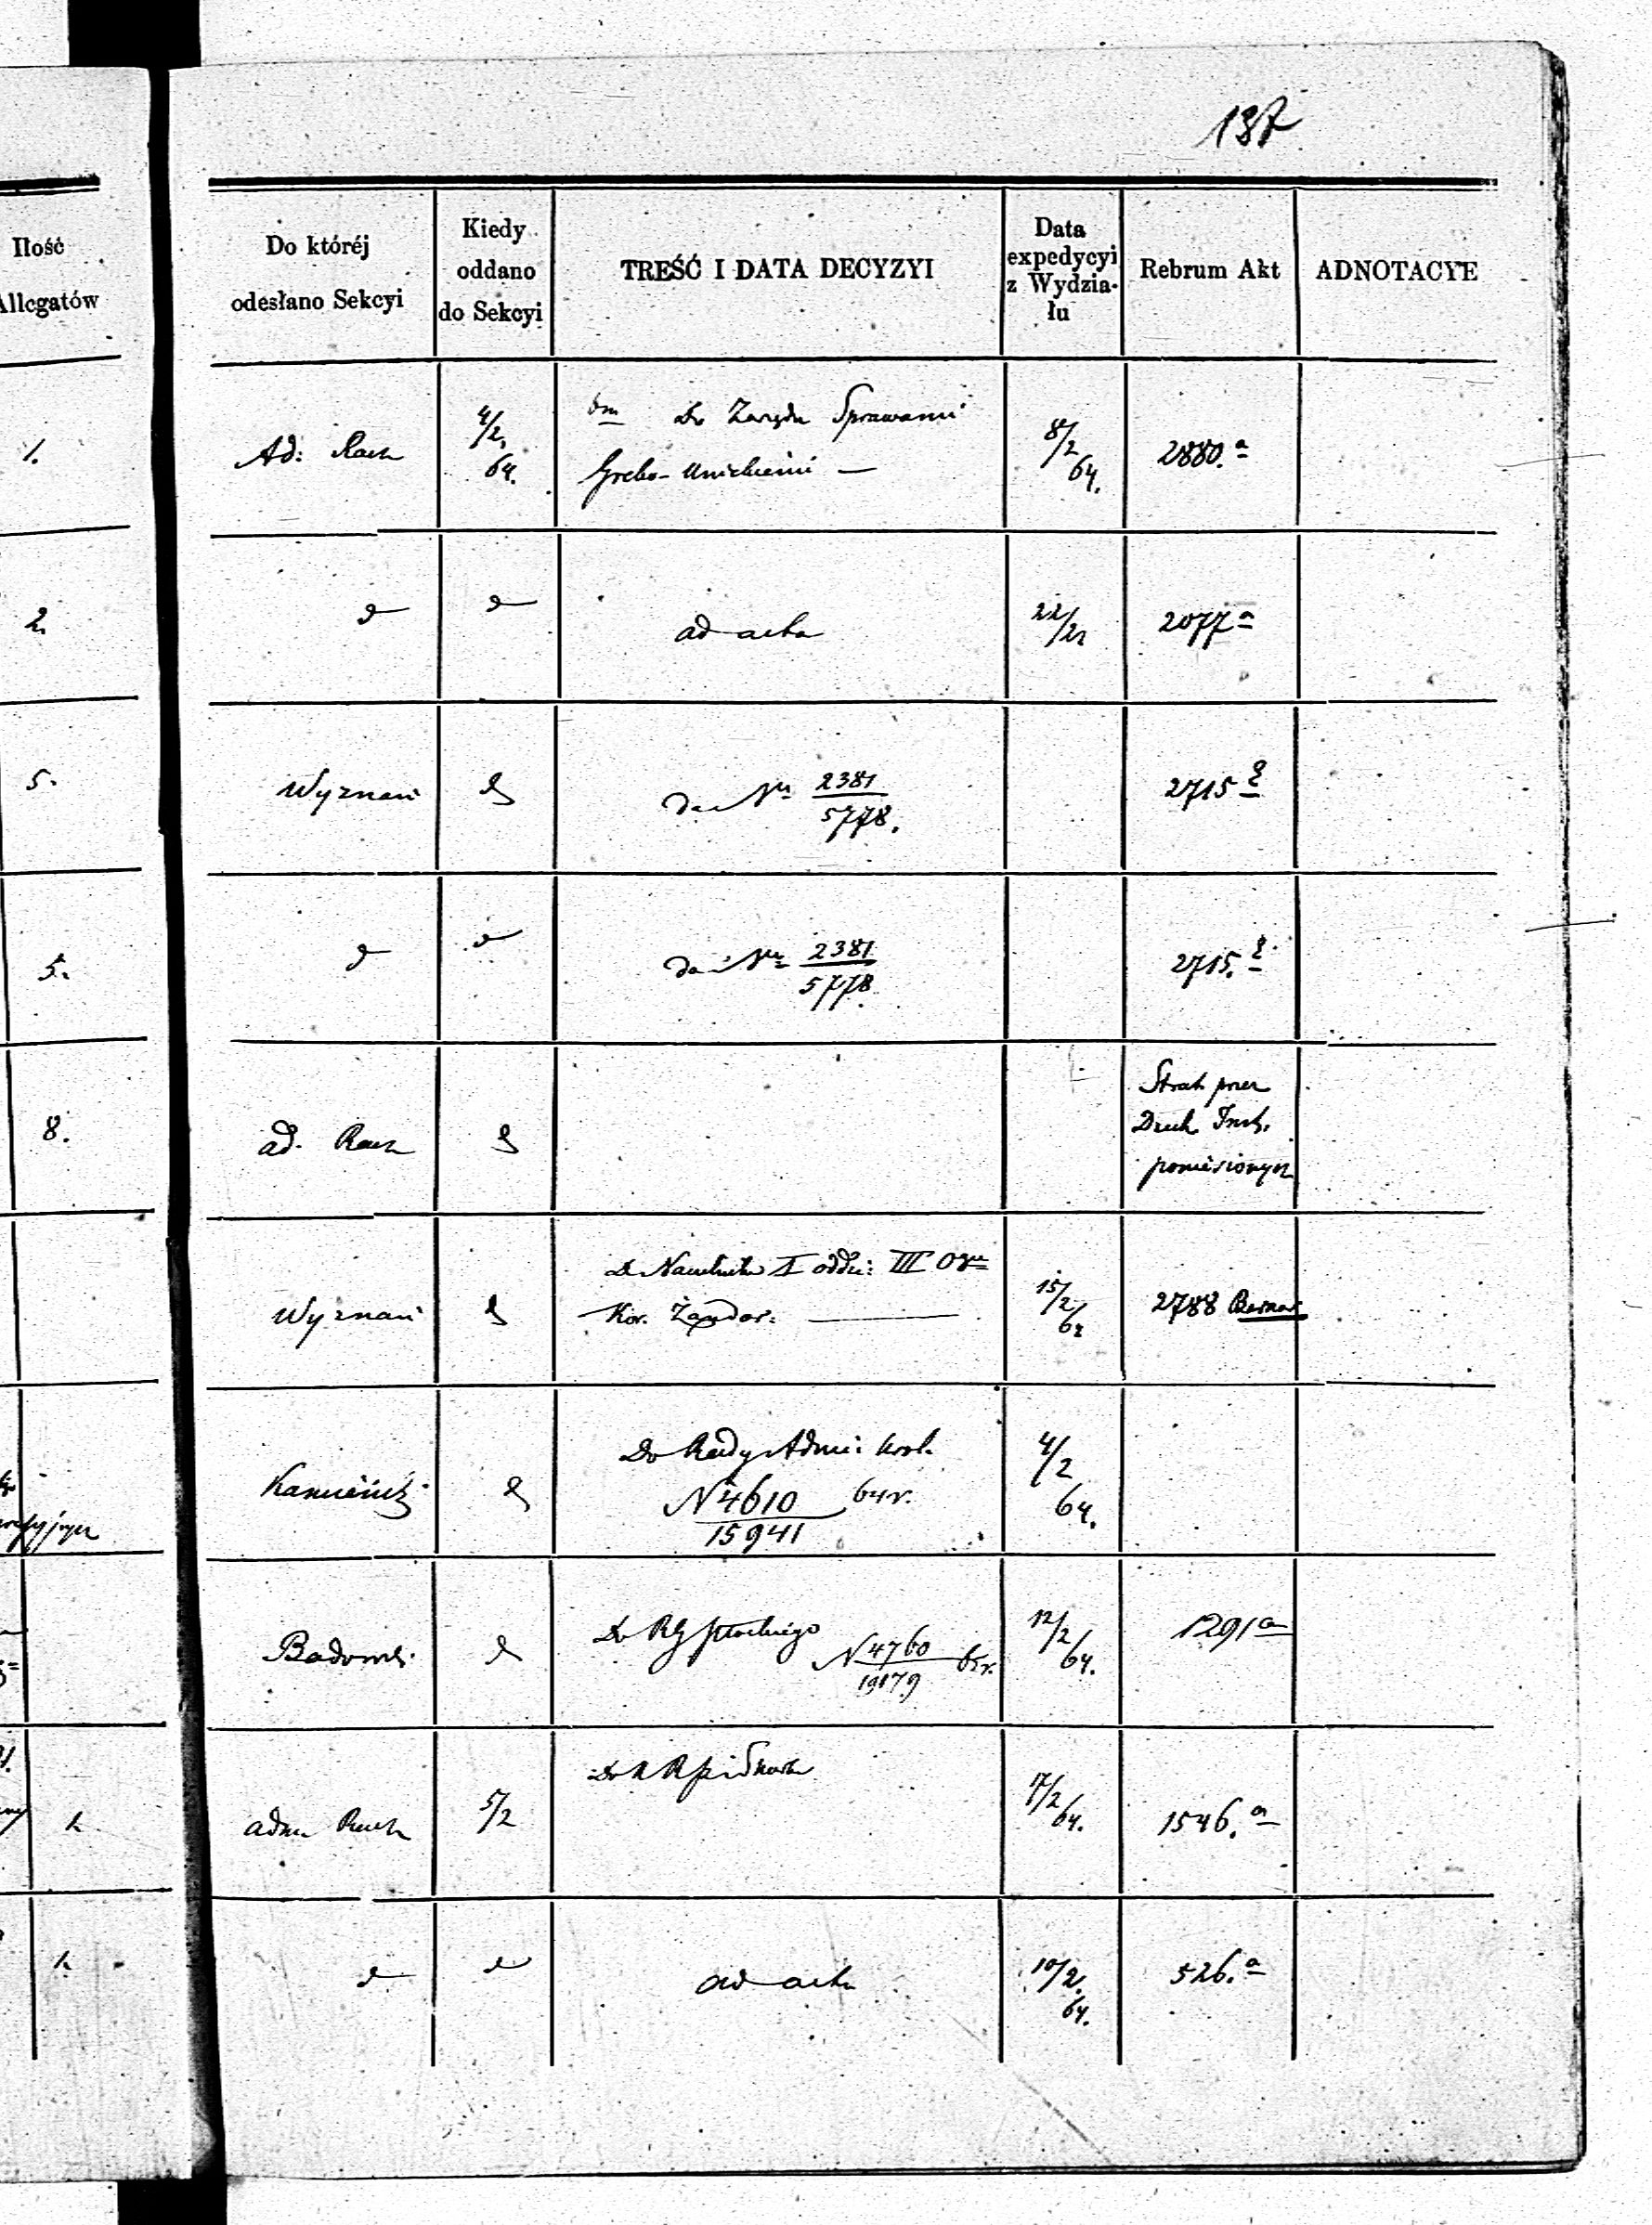 137
Ilość
Allegatów
Do któréj
odesłano Sekcyi
Kiedy
oddano
do Sekcyi
TREŚĆ I DATA DECYZYI
Data
expedycyi
z Wydzia-
łu
Rebrum Akt
ADNOTACYE
1.
Ad: Rach
4/2
64.
Do Zarządu Sprawami
Grecko-Unickiemi —
8/2
64.
2880.a
2.
ad acta
22/2
2077 a
5.
Wyznań
2381
5778.
2715
5.
2381
5778.
2715.
8.
ad. Rach
Strat przez
Duch. Inst.
poniesionych
Wyznań
Do Naczelnika I oddz: III
Kor. Żandar.
15/2
64
2788
Do Rady Admi: Król.
N 4610 64 r.
15941
4/2
64.
Do RG Płockiego
N 4760
19179
12/2
64.
1291 a
1.
adm Rach
5/2
17/2
64.
1546. a
1.
ad acta
10/2.
64.
526. a